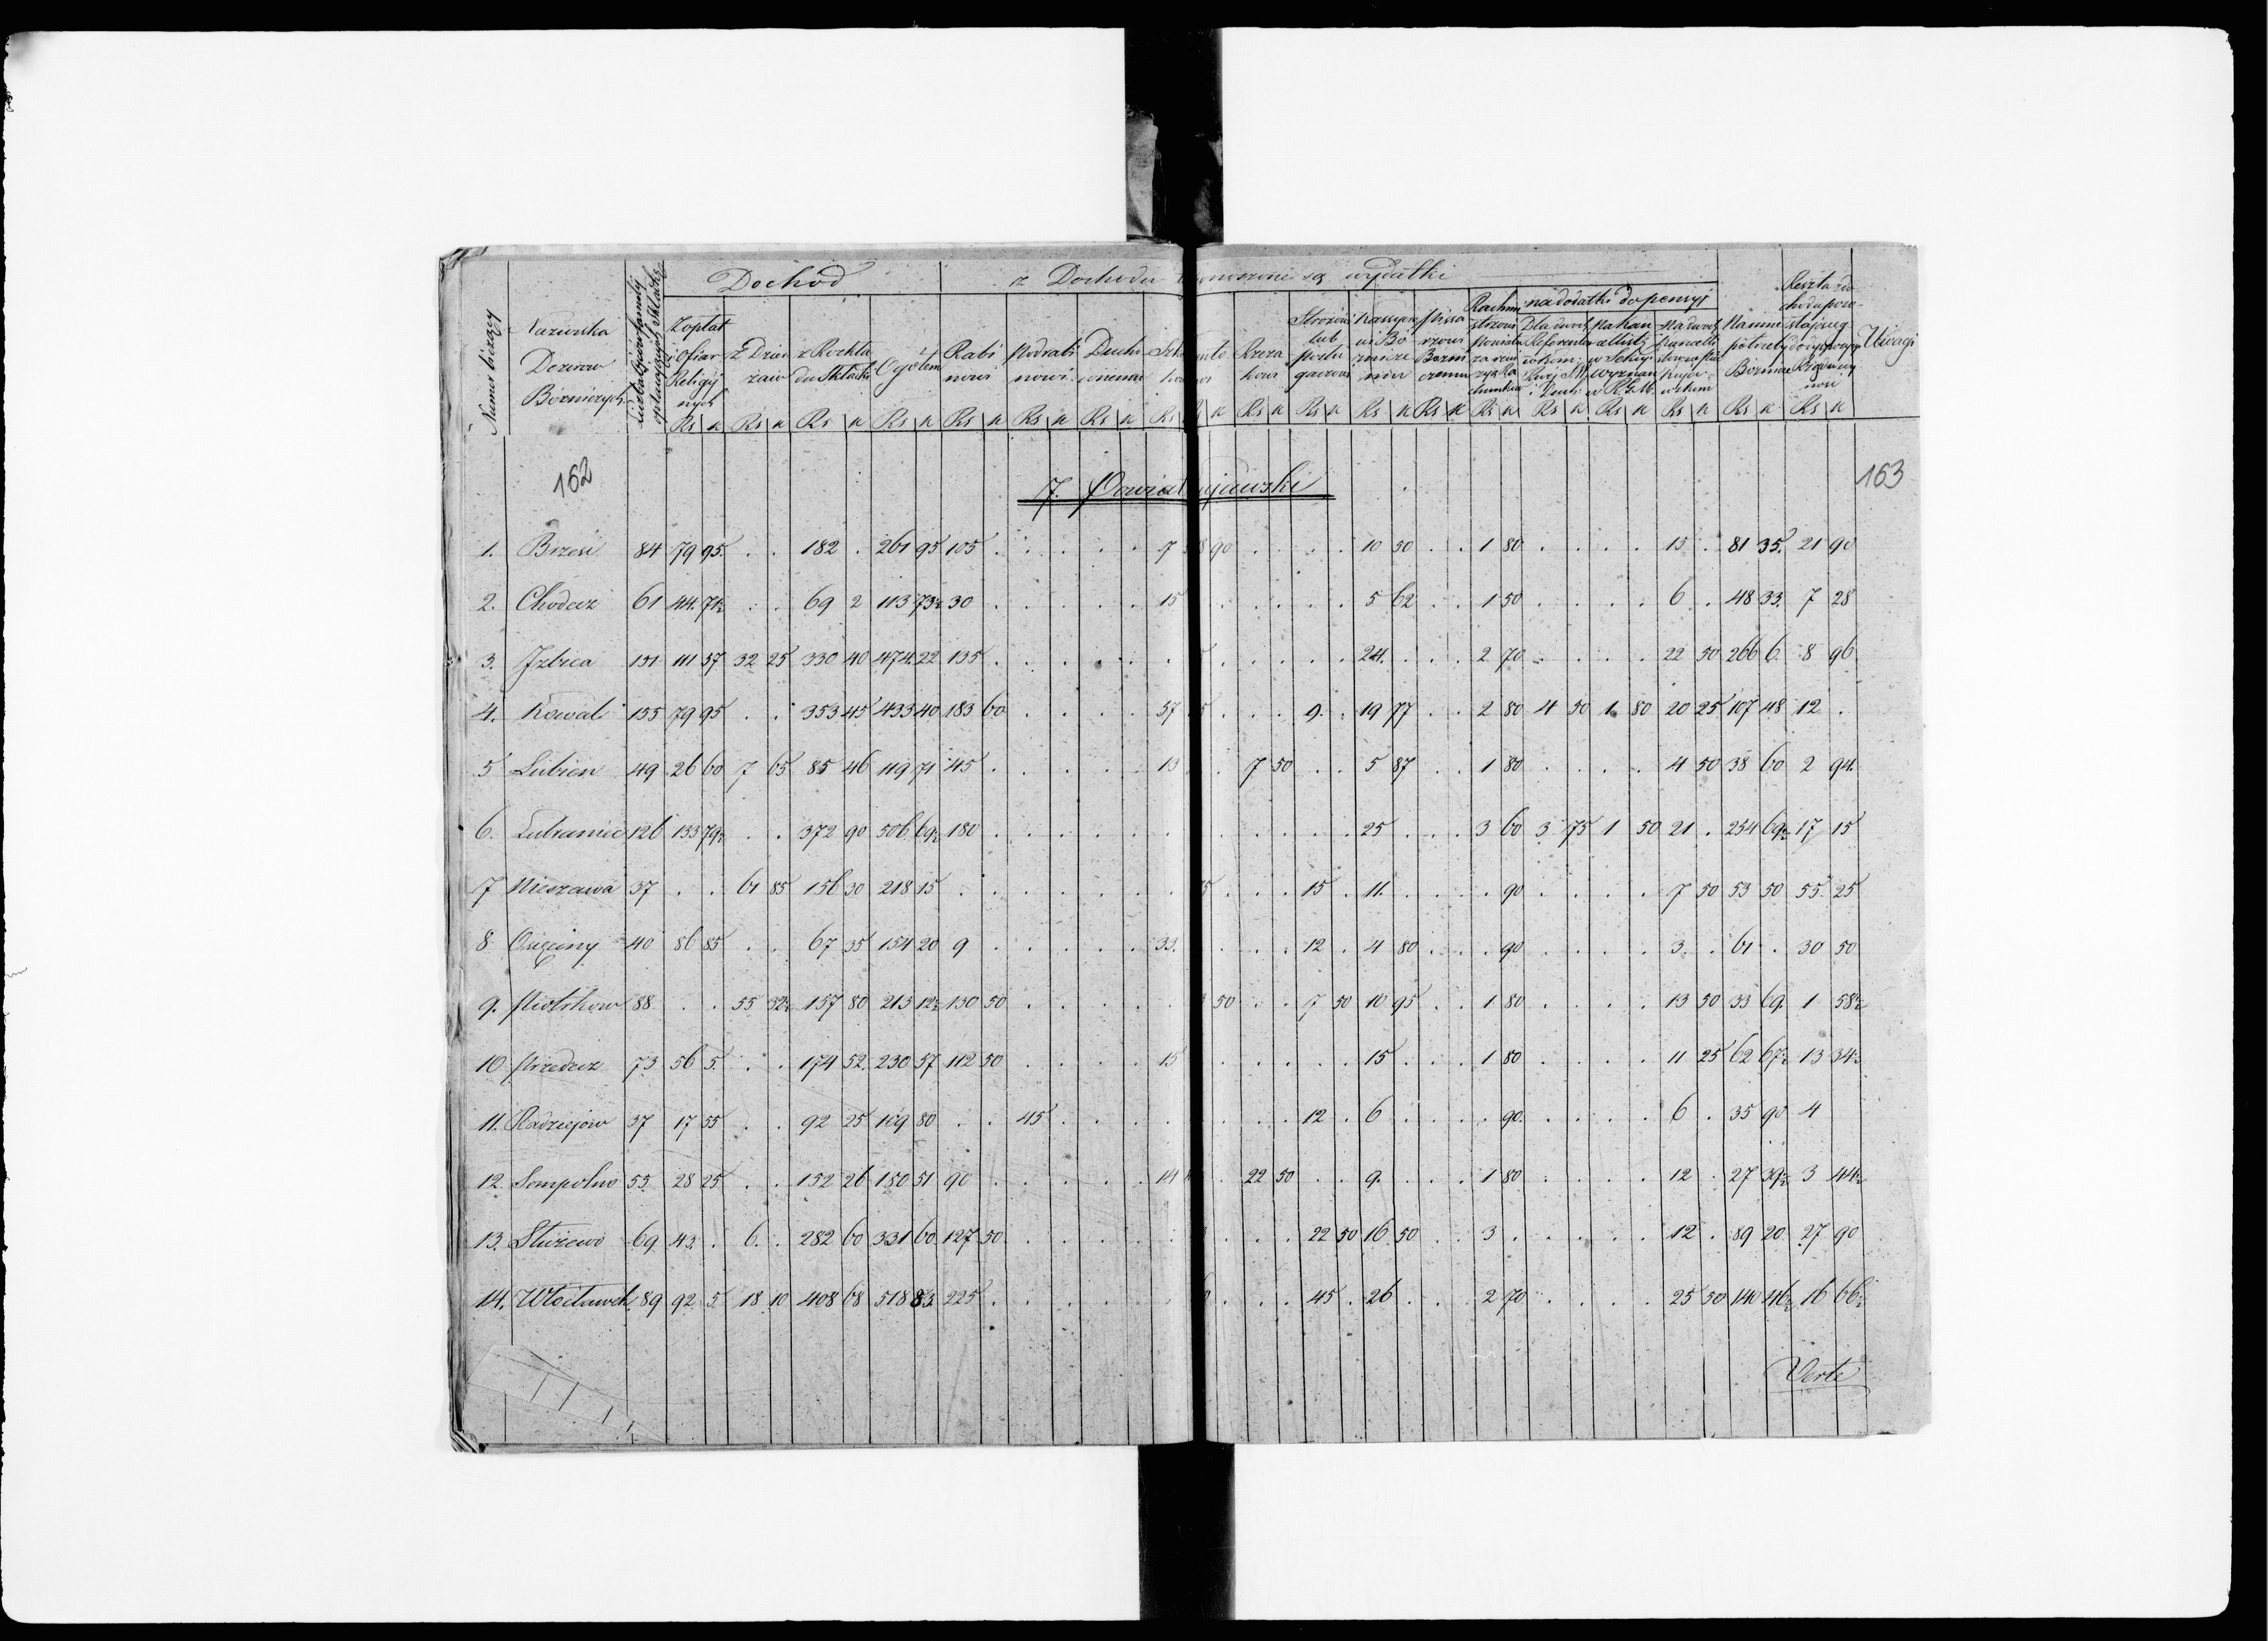 Dochód z Dochodu ponoszone są wydatki
Numer bieżący
Nazwiska Dozorów Bóżniczych
Liczba Familij opłacających Składkę
Z opłat i Ofiar Religijnych
Z Dzierżaw
z Rozkładu Składki
Ogółem
Rabinowi
Podrabinowi
Duchownemu
Rzezakowi
Stróżowi lub posługaczowi
Kassyerowi Bóżnicznemu
Pissarzowi Bożniczemu
na dodatki do pensyj
Na inne potrzeby Bóżnicze
Reszta dochodu pozostającego do dyspozycyi
Uwagi
Rs k Rs k Rs k Rs k Rs k Rs k Rs k Rs k Rs k Rs k Rs k Rs k Rs k Rs k Rs k Rs k Rs k
162 163
7. Powiat ujawski
1. Brześć 84 79 95 . . 182 . 261 95 105 . . . . . 7 8 90 . . . . 10 50 . . 1 80 . . . . 15 . 81 35. 21 90
2. Chodecz 61 44. 71½ . . 69 2 113 73½ 30 . . . . . 15 . . . . . 5 62 . . 1 50 . . . . 6 . 48 33. 7 28
3. Izbica 151 111 57 32 25 330 40 474. 22 135 . . . . . . . . . . . 24. . . . 2 70 . . . . 22 50 266 6 8 96
4. Kowal 155 79 95 . . 353 45 433 40 183 60 . . . . 57 5 . . . 9. . 19 77 . . 2 80 4 50 1 80 20 25 107 48 12 .
5 Lubien 49 26 60 7 65 85 46 119 71 45 . . . . . 13 . 7 50 . . 5 87 . . 1 80 . . . . 4 50 38 60 2 94.
6. Lubraniec 126 133 79½ . . 372 90 506 69½ 180 . . . . . . . . . . . 25 . . . 3 60 3 75 1 50 21 . 254 69½ 17 15
7 Nieszawa 37 . . 61 85 156 30 218 15 . . . . . . . 5 . . . 15 . 11. . . . . 90 . . . . 7 50 53 50 55 25
8 Osięciny 40 86 85 . . 67 35 154 20 9 . . . . . 33. . . . 12 . 4 80 . . . 90 . . . . 3. . 61 . 30 50
9. Piotrkow 88 . . 55 32½ 157 80 213 12½ 130 50 . . . . . 50 . . 7 50 10 95 . . 1 80 . . . . 13 50 33 69. 1 58½
10 Przedecz 73 56 5. . . 174 52. 230 57 112 50 . . . . 15 . . . . . 15 . . . 1 80 . . . . 11 25 62 67½ 13 34½
11. Radziejów 37 17 55 . . 92 25 109 80 . . 45 . . . . . . . 12 . 6 . . . . 90. . . . . 6 . 35 90 4
12. Sompolno 55 28 25 . . 152 26 180 51 90 . . . . . 14 . 22 50 . . 9. . . . 1 80 . . . . 12 . 27 39½ 3 44½
13. Służewo 69 43. . 6. . 282 60 331 60 127 50 . . . . . . . . 22 50 16 50 . . 3 . . . . . 12 . 89 20 27 90
14. Włocławek 89 92 5 18 10 408 68 518 83 225 . . . . . . . . . 45 . 26 . . . 2 70 . . . . 25 50 140 46½ 16 66½
Verte